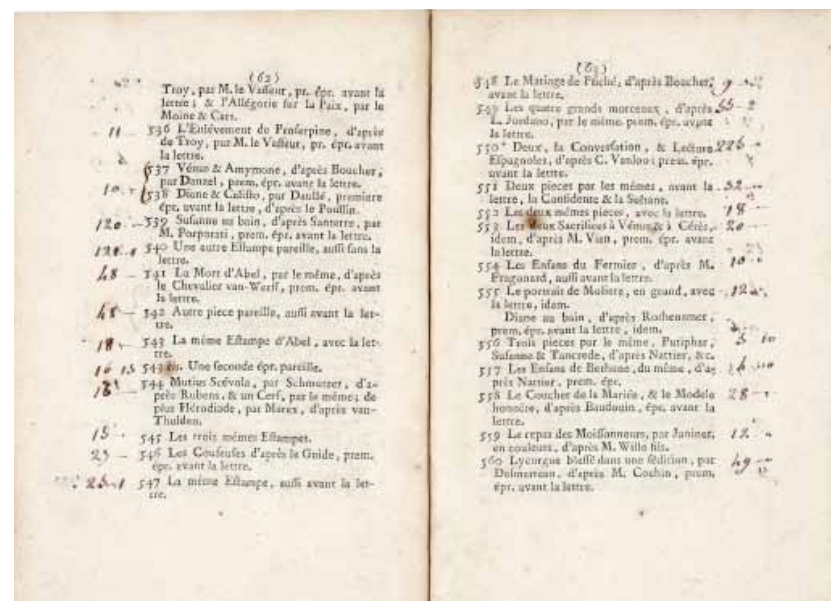 (62)
Troy, par M. le Vasseur, pr. épr. avant la
lettre ; & l'Allégorie sur la Paix, par le
Moine & Cars.
11 536 L'Enlévement de Proserpine, d'après
de Troy, par M. le Vasseur, pr. épr. avant
la lettre.
537 Vénus & Amymone, d'après Boucher,
par Danzel, prem. épr. avant la lettre.
10 538 Diane & Calisto, par Daullé, premiere
épr. avant la lettre, d'après le Poussin.
120 539 Susanne au bain, d'après Santerre, par
M. Porporati, prem. épr. avant la lettre.
120 1 540 Une autre Estampe pareille, aussi sans la
lettre.
48 541 La Mort d'Abel, par le même, d'après
le Chevalier van-Werff, prem. épr. avant
la lettre.
48 542 Autre piece pareille, aussi avant la let-
tre.
18 543 La même Estampe d'Abel, avec la let-
tre.
16 13 543 bis. Une seconde épr. pareille.
18 544 Mutius Scévola, par Schmutzer, d'a-
près Rubens, & un Cerf, par le même ; de
plus Hérodiade, par Marex, d'après van-
Thulden.
15 545 Les trois mêmes Estampes.
23 546 Les Couseuses d'après le Guide, prem.
épr. avant la lettre.
23 1 547 La même Estampe, aussi avant la let-
tre.
(63)
548 Le Mariage de Psiché, d'après Boucher, 9
avant la lettre.
549 Les quatre grands morceaux, d'après 55 2
L. Jordano, par le même. prem. épr. avant
la lettre.
550* Deux, la Conversation, & Lecture
Espagnoles, d'après C. Vanloo ; prem. épr.
avant la lettre.
551 Deux pieces par les mêmes, avant la 32
lettre, la Confidente & la Sultane.
552 Les deux mêmes pieces, avec la lettre. 18
553 Les deux Sacrifices à Vénus & à Cérès, 20
idem, d'après M. Vien, prem. épr. avant
la lettre.
554 Les Enfans du Fermier, d'après M. 10
Fragonard, aussi avant la lettre.
555 Le portrait de Moliere, en grand, avec 12
la lettre, idem.
Diane au bain, d'après Rothenamer,
prem. épr. avant la lettre, idem.
556 Trois pieces par le même, Putiphar, 5 10
Susanne & Tancrede, d'après Nattier, &c.
557 Les Enfans de Bethune, du même, d'a-
près Nattier, prem. épr.
558 Le Coucher de la Mariée, & le Modele 28
honnête, d'après Baudouin, épr. avant la
lettre.
559 Le repas des Moissonneurs, par Janinet, 12
en couleurs, d'après M. Wille fils.
560 Lycurgue blessé dans une sédition, par 49
Demarteau, d'après M. Cochin, prem.
épr. avant la lettre.